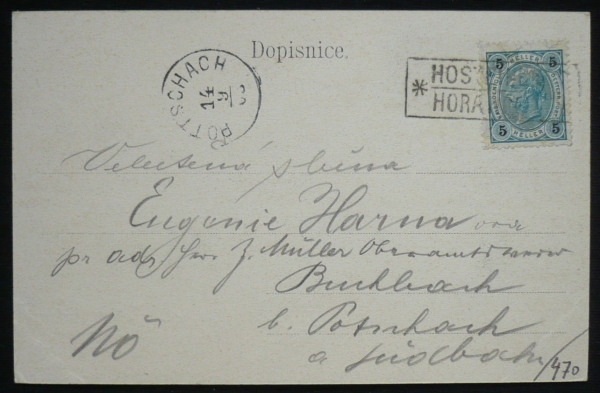 Dopisnice.
POTTSCHACH
14
9
* HOS
HORA
5 5
HELLER
5 5
HELLER
Velectená slečna
Eugenie Harna
pr adr. Herr J. Müller Oberamts
Buchbach
b. Potschach
a Südbahn
NÖ
/470